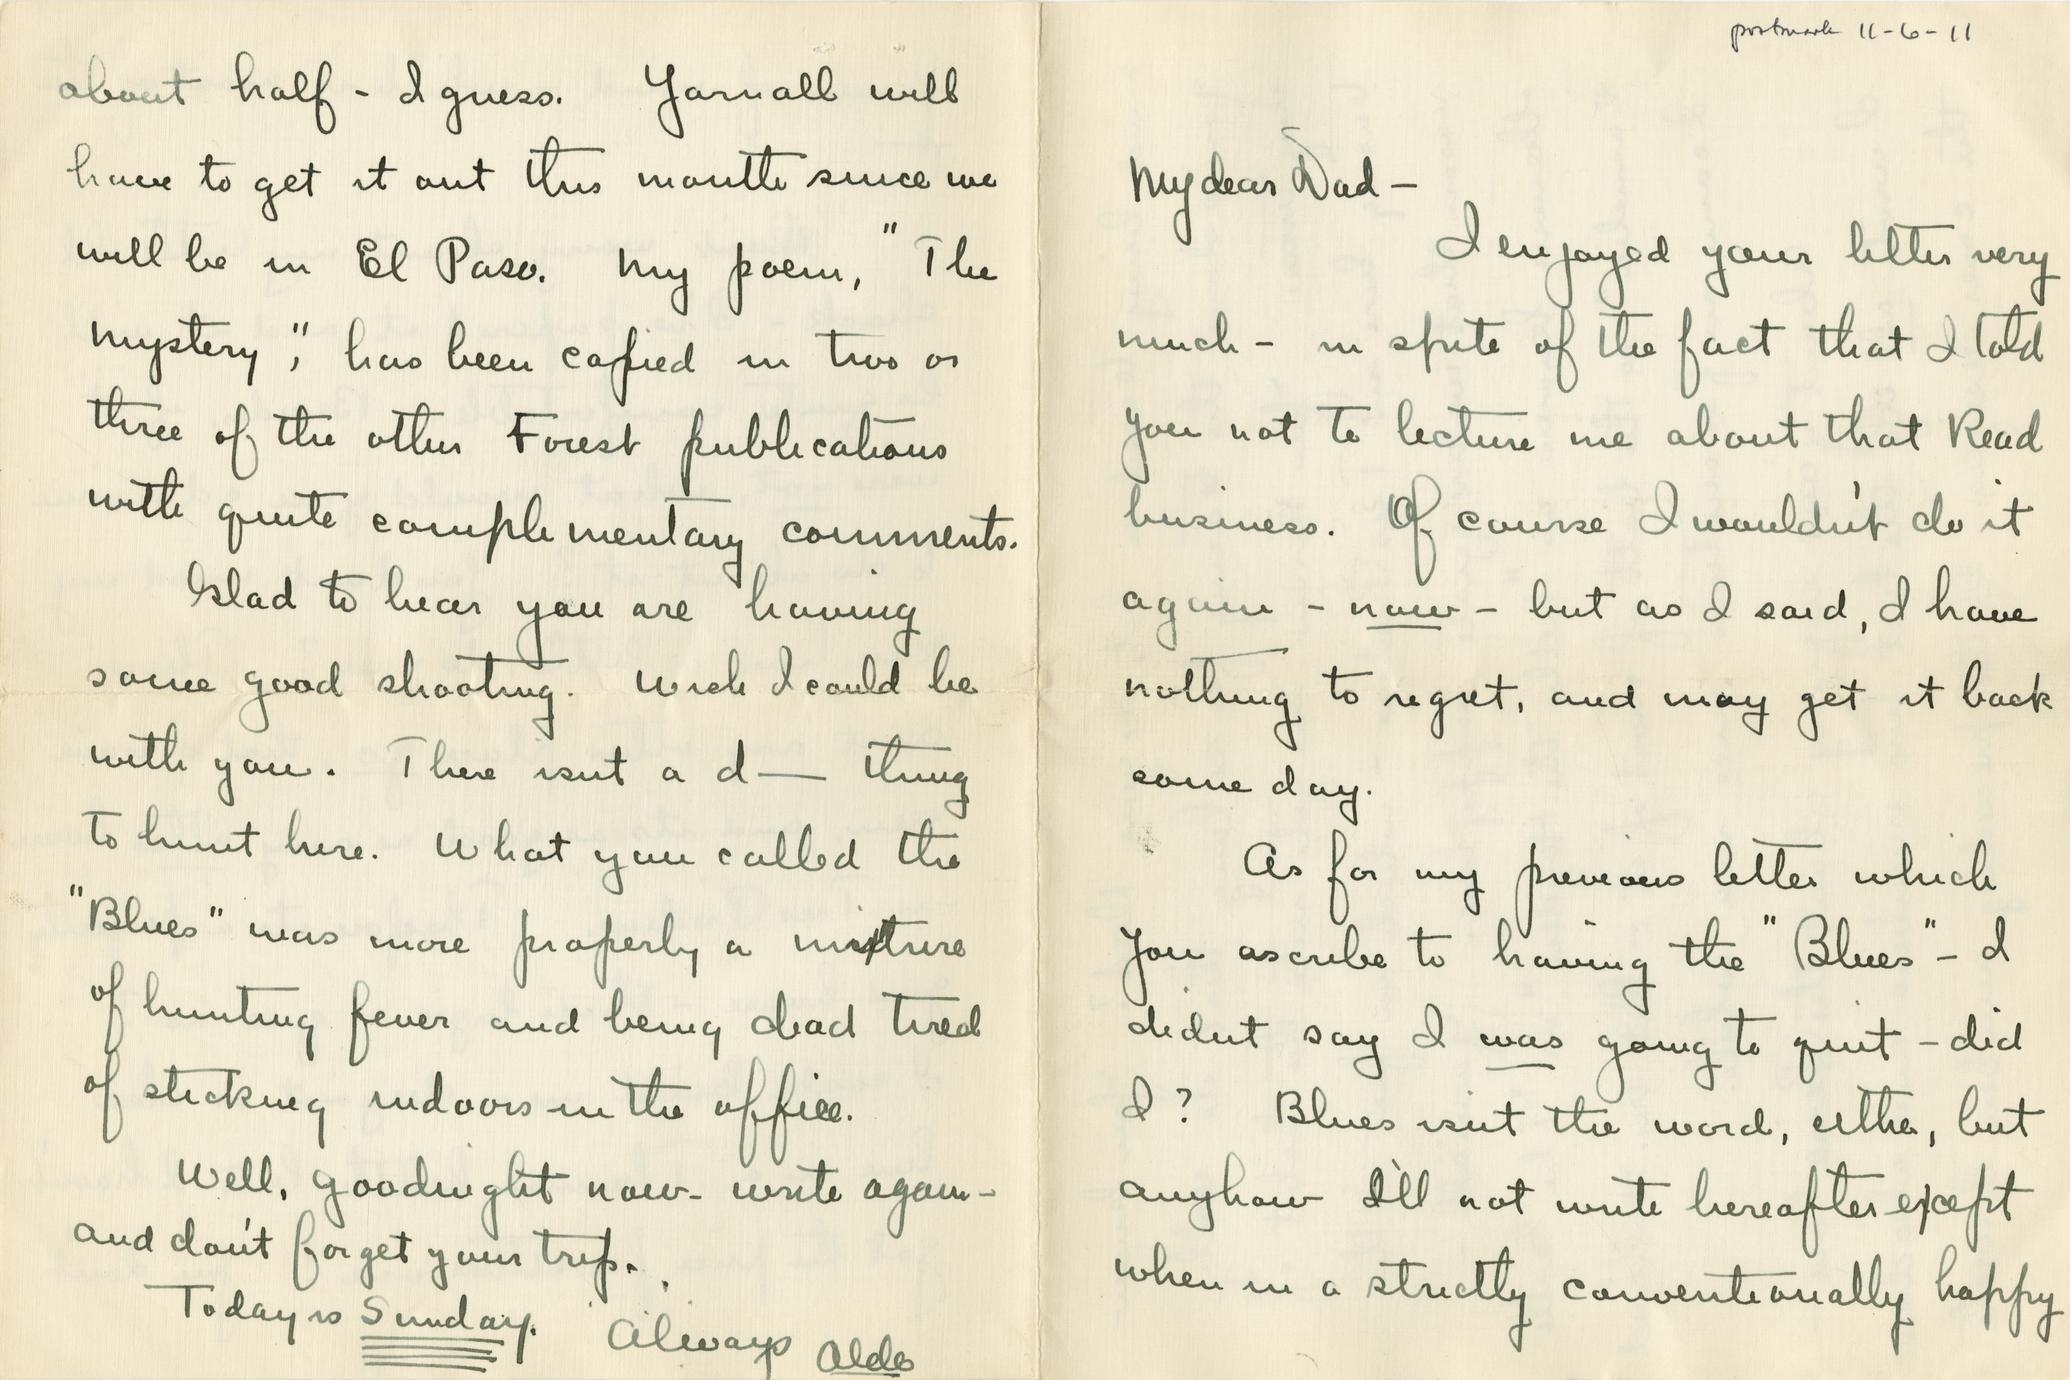 postmark 11-6-11
My dear Dad -
I enjoyed your letter very
much - in spite of the fact that I told
you not to lecture me about that Read
business. Of course I wouldn't do it
again - now - but as I said, I have
nothing to regret, and may get it back
some day.
As for my previous letter which
you ascribe to having the "Blues" - I
didn't say I was going to quit - did
I? Blues isn't the word, either, but
anyhow I'll not write hereafter except
when in a strictly conventionally happy
about half - I guess. Yarnall will
have to get it out this month since we
will be in El Paso. My poem, "The
Mystery", has been copied in two or
three of the other Forest publications
with quite complementary comments.
Glad to hear you are having
some good shooting. Wish I could be
with you. There isn't a d— thing
to hunt here. What you called the
"Blues" was more properly a mixture
of hunting fever and being dead tired
of sticking indoors in the office.
Well, goodnight now - write again -
and don't forget your trip.
Today is Sunday. Always Aldo